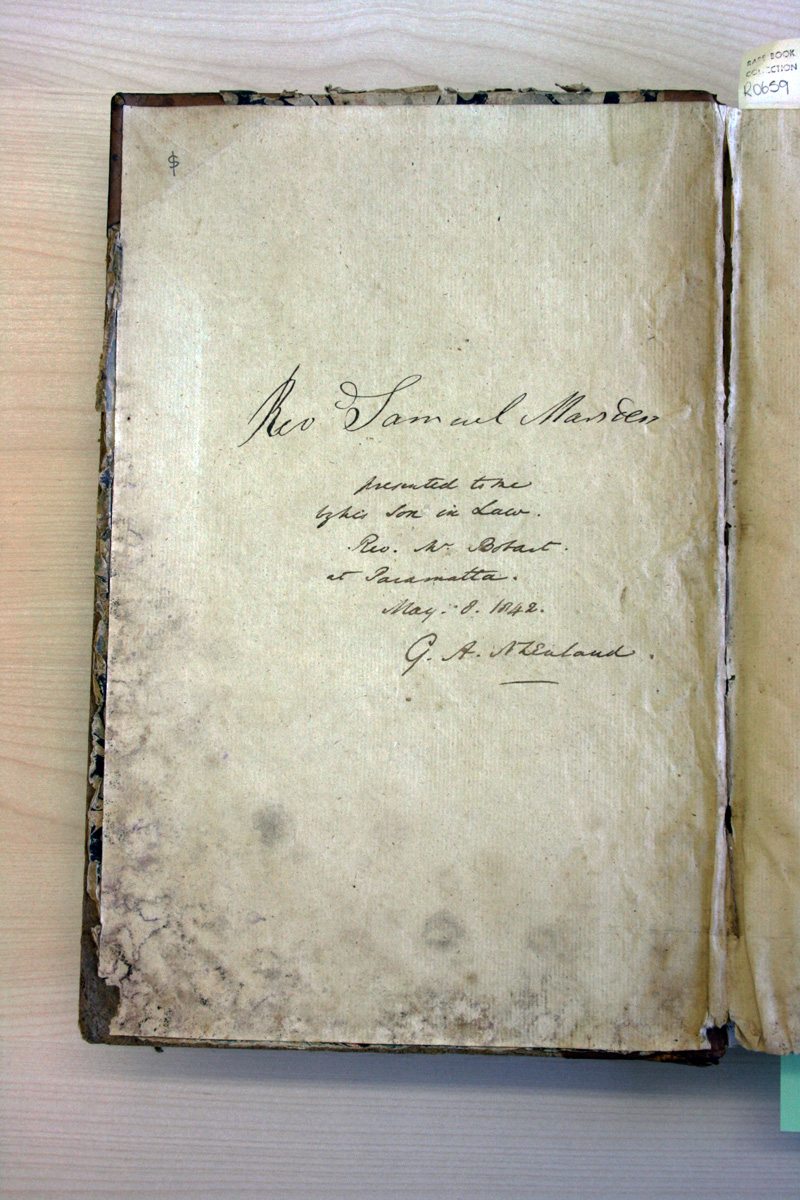 RARE BOOK
COLLECTION
R0659
$
Rev Samuel Marsden
presented to me
by his Son in Law.
Rev. Mr Bobart.
at Paramatta.
May. 8. 1842.
G. A.